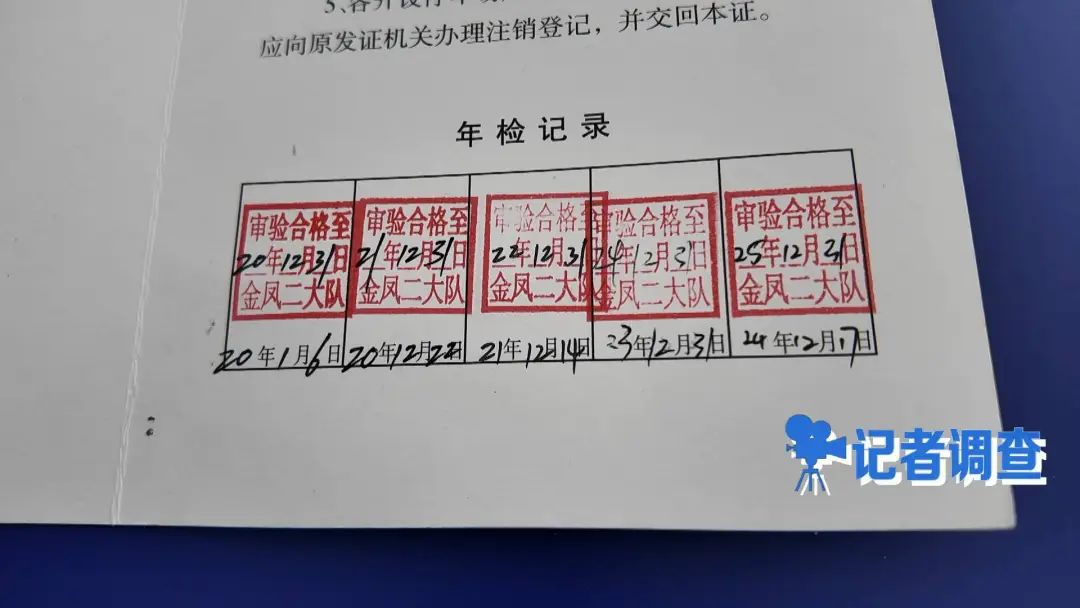 3、各
应向原发证机关办理注销登记，并交回本证。
年检记录
审验合格至 审验合格至 审验合格至 审验合格至 审验合格至
20年12月31日 21年12月31日 22年12月31 24年12月31日 25年12月31日
金凤二大队 金凤二大队 金凤二大队 金凤二大队 金凤二大队
20年1月6日 20年12月22日 21年12月14日 23年12月31日 24年12月17日
记者调查